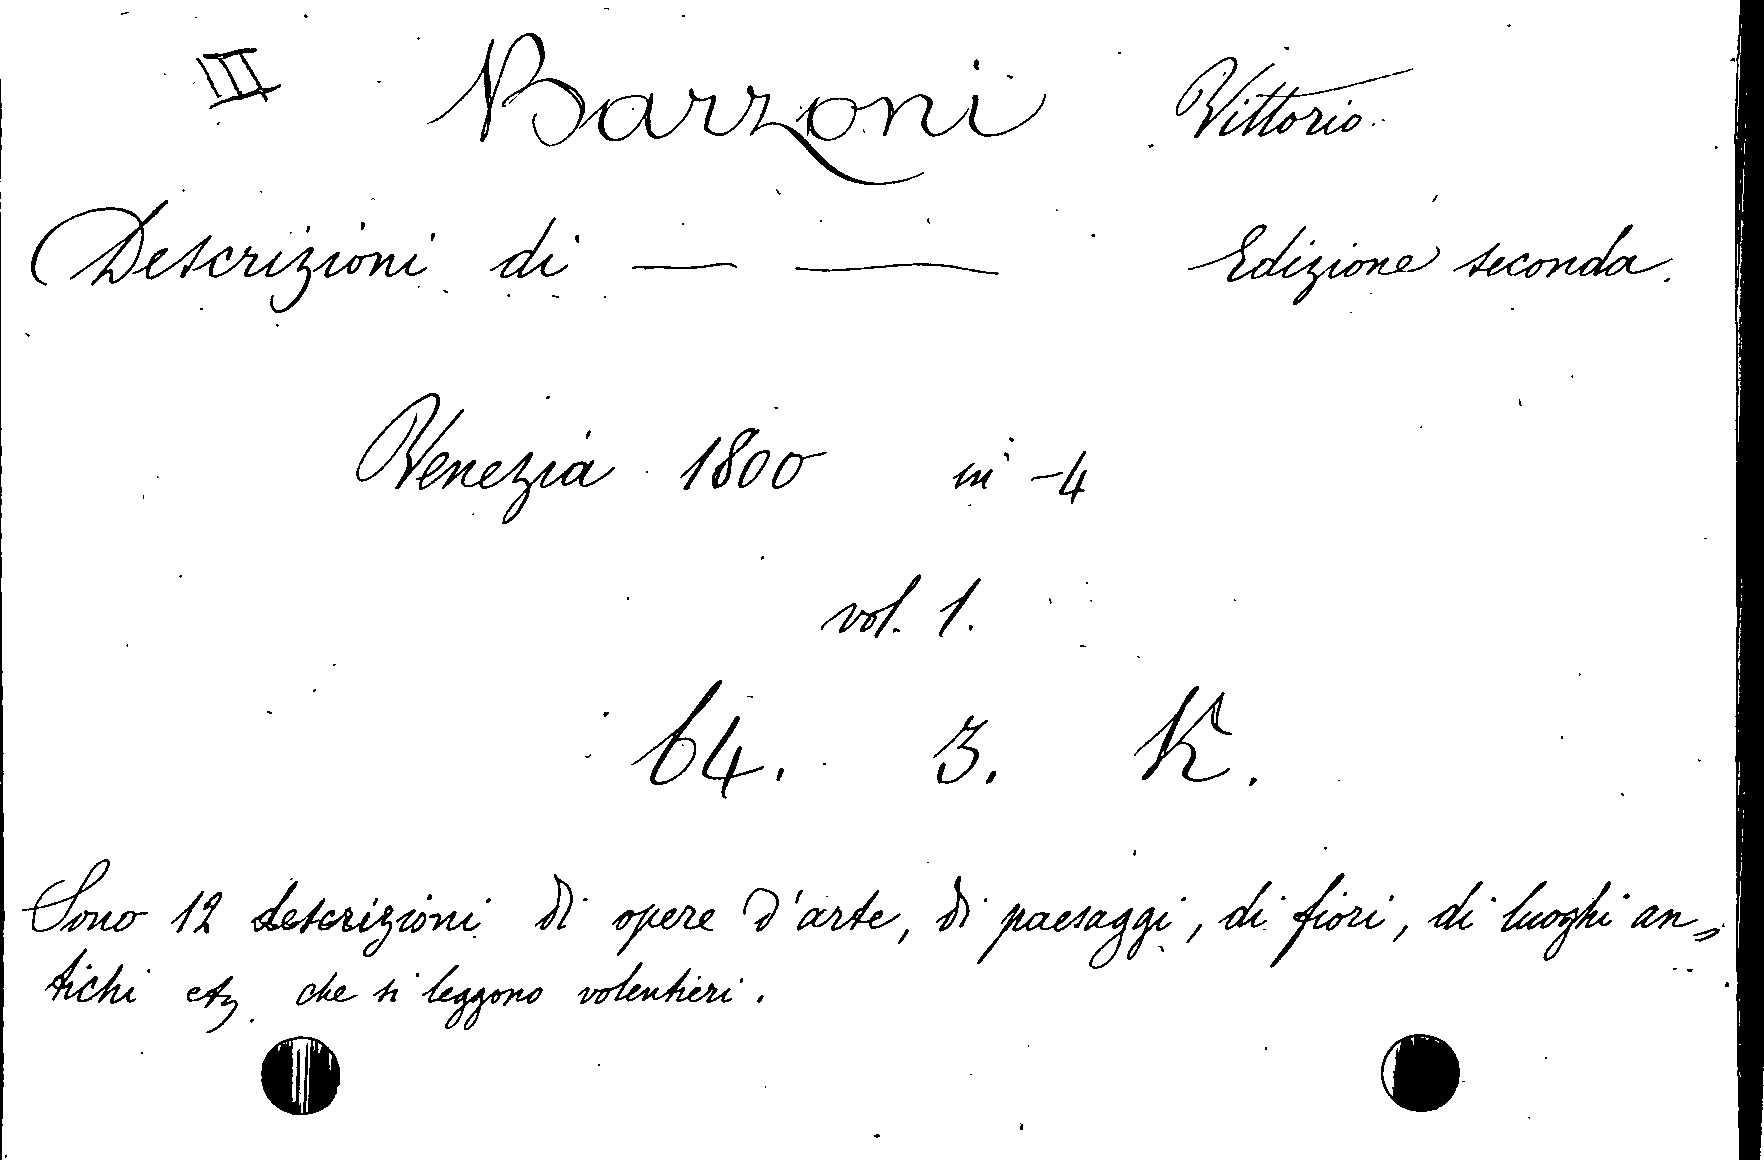 III Barzoni Vittorio
Descrizioni di — — Edizione seconda.
Venezia 1800 in-4
vol. 1.
64. 3. K.
Sono 12 descrizioni di opere d'arte, di paesaggi, di fiori, di luoghi an„
tichi etz che si leggono volentieri.